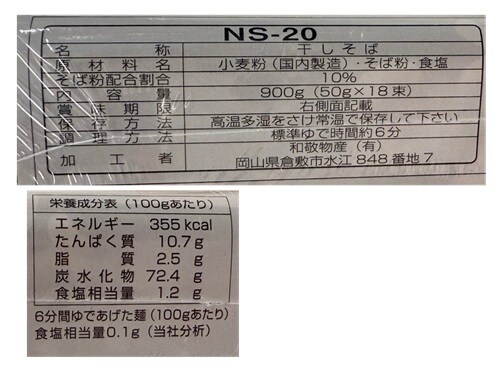 NS-20
名称 干しそば
原材料名 小麦粉(国内製造)・そば粉・食塩
そば粉配合割合 10%
内容量 900g(50g×18束)
賞味期限 右側面記載
保存方法 高温多湿をさけ常温で保存して下さい
調理方法 標準ゆで時間約6分
加工者 和敬物産(有)
岡山県倉敷市水江848番地7
栄養成分表(100gあたり)
エネルギー 355kcal
たんぱく質 10.7g
脂質 2.5g
炭水化物 72.4g
食塩相当量 1.2g
6分間ゆであげた麺(100gあたり)
食塩相当量0.1g(当社分析)